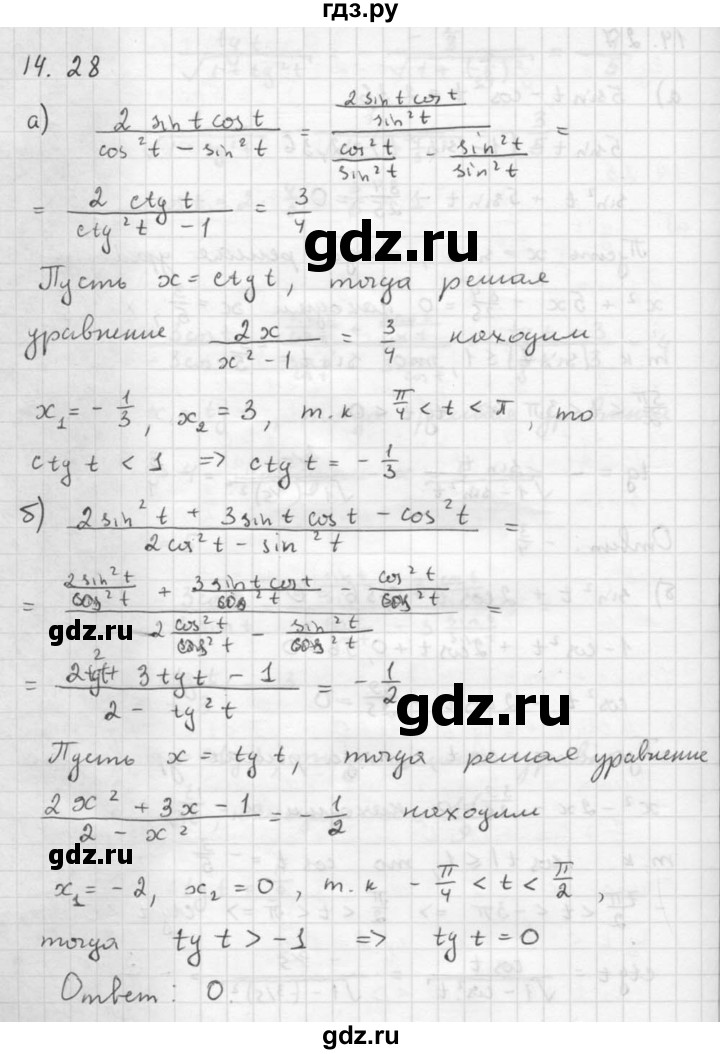 гдз.ру
14.28
а) (2 sin t cos t)/(cos² t − sin² t) = ((2 sin t cos t)/(sin² t))/((cos² t)/(sin² t) − (sin² t)/(sin² t)) =
= (2 ctg t)/(ctg² t − 1) = 3/4
gdz.ru
Пусть x = ctg t, тогда решая
уравнение 2x/(x² − 1) = 3/4 находим
x₁ = − 1/3, x₂ = 3, т.к π/4 < t < π, то
ctg t < 1 ⇒ ctg t = − 1/3
б) (2 sin² t + 3 sin t cos t − cos² t)/(2 cos² t − sin² t) =
= ((2 sin² t)/(cos² t) + (3 sin t cos t)/(cos² t) − (cos² t)/(cos² t))/(2 (cos² t)/(cos² t) − (sin² t)/(cos² t)) =
gdz.ru
= (2 tg² t + 3 tg t − 1)/(2 − tg² t) = − 1/2
gdz.ru
Пусть x = tg t, тогда решая уравнение
(2x² + 3x − 1)/(2 − x²) = − 1/2 находим
gdz.ru
x₁ = − 2, x₂ = 0, т.к − π/4 < t < π/2,
тогда tg t > −1 ⇒ tg t = 0
Ответ: 0.
gdz.ru
gdz.ru